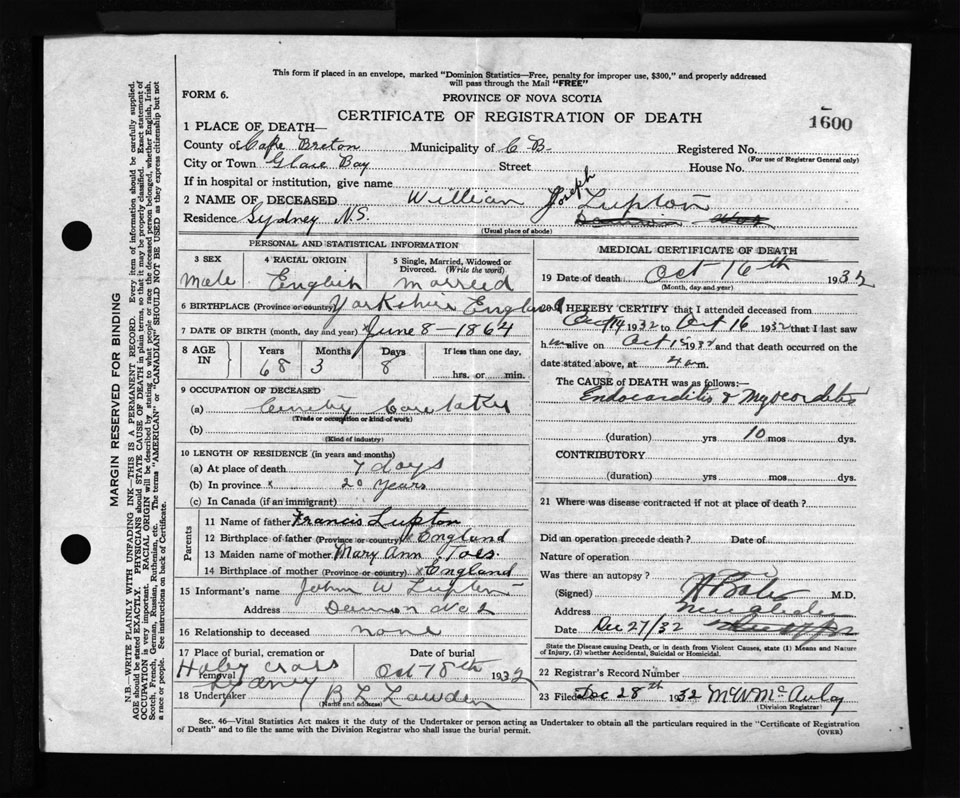 This form if placed in an envelope, marked "Dominion Statistics—Free, penalty for improper use, $300," and properly addressed
will pass through the Mail "FREE"
FORM 6.
PROVINCE OF NOVA SCOTIA
CERTIFICATE OF REGISTRATION OF DEATH
1600
1 PLACE OF DEATH—
County of Cape Breton Municipality of C B. Registered No.
(For use of Registrar General only)
City or Town Glace Bay Street House No.
If in hospital or institution, give name
2 NAME OF DECEASED William Joseph Lupton
Residence Sydney N.S.
(Usual place of abode)
PERSONAL AND STATISTICAL INFORMATION
3 SEX 4 RACIAL ORIGIN 5 Single, Married, Widowed or
Divorced. (Write the word)
Male English Married
6 BIRTHPLACE (Province or country) Yorkshire England
7 DATE OF BIRTH (month, day and year) June 8 - 1864
8 AGE IN Years Months Days If less than one day,
68 3 8 hrs. or min.
9 OCCUPATION OF DECEASED
(a) Caretaker
(Trade or occupation or kind of work)
(b)
(Kind of industry)
10 LENGTH OF RESIDENCE (in years and months)
(a) At place of death 7 days
(b) In province x 20 Years
(c) In Canada (if an immigrant)
Parents
11 Name of father Francis Lupton
12 Birthplace of father (Province or country) x England
13 Maiden name of mother Mary Ann Toes.
14 Birthplace of mother (Province or country) x England
15 Informant's name John W Lupton
Address No 2
16 Relationship to deceased none
17 Place of burial, cremation or removal Date of burial
Holey cross Sydney Oct 18th 1932
18 Undertaker B L
(Name and address)
MEDICAL CERTIFICATE OF DEATH
19 Date of death Oct 16th 1932
(Month, day and year)
I HEREBY CERTIFY that I attended deceased from
Oct 14 1932 to Oct 16 1932 that I last saw
him alive on Oct 15 1932 and that death occurred on the
date stated above, at m.
The CAUSE of DEATH was as follows:—
Endocarditis & Myocarditis
(duration) yrs 10 mos dys.
CONTRIBUTORY
(duration) yrs. mos dys.
21 Where was disease contracted if not at place of death?
Did an operation precede death? Date of
Nature of operation
Was there an autopsy?
(Signed) M.D.
Address
Date Dec 27/32
State the Disease causing Death, or in death from Violent Causes, state (1) Means and Nature
of Injury, (2) whether Accidental, Suicidal or Homicidal.
22 Registrar's Record Number
23 Filed Dec 28th 1932 McAulay
(Division Registrar)
Sec. 46—Vital Statistics Act makes it the duty of the Undertaker or person acting as Undertaker to obtain all the particulars required in the "Certificate of Registration
of Death" and to file the same with the Division Registrar who shall issue the burial permit.
(OVER)
MARGIN RESERVED FOR BINDING
N.B.—WRITE PLAINLY WITH UNFADING INK—THIS IS A PERMANENT RECORD. Every item of information should be carefully supplied.
AGE should be stated EXACTLY. PHYSICIANS should STATE CAUSE OF DEATH in plain terms, so that it may be properly classified. Exact statement of
OCCUPATION is very important. RACIAL ORIGIN will be described by stating to what people or race the deceased person belonged, whether English, Irish,
Scotch, French, German, Russian, Ruthenian, etc. The terms "AMERICAN" or "CANADIAN" SHOULD NOT BE USED as they express citizenship but not
a race or people. See instructions on back of Certificate.